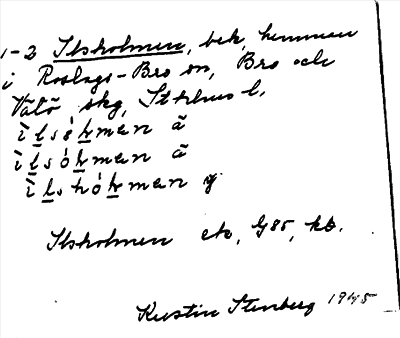 1-2 Ilsholmen, bek, hemman
i Roslags-Bro sn, Bro och
VäLö skg, Stkhus l.
ìlsòhman ä
ìlsóhman ä
ìlshòhman y
Ilsholmen ek, G85, kb.
Kerstin Stenberg 1945